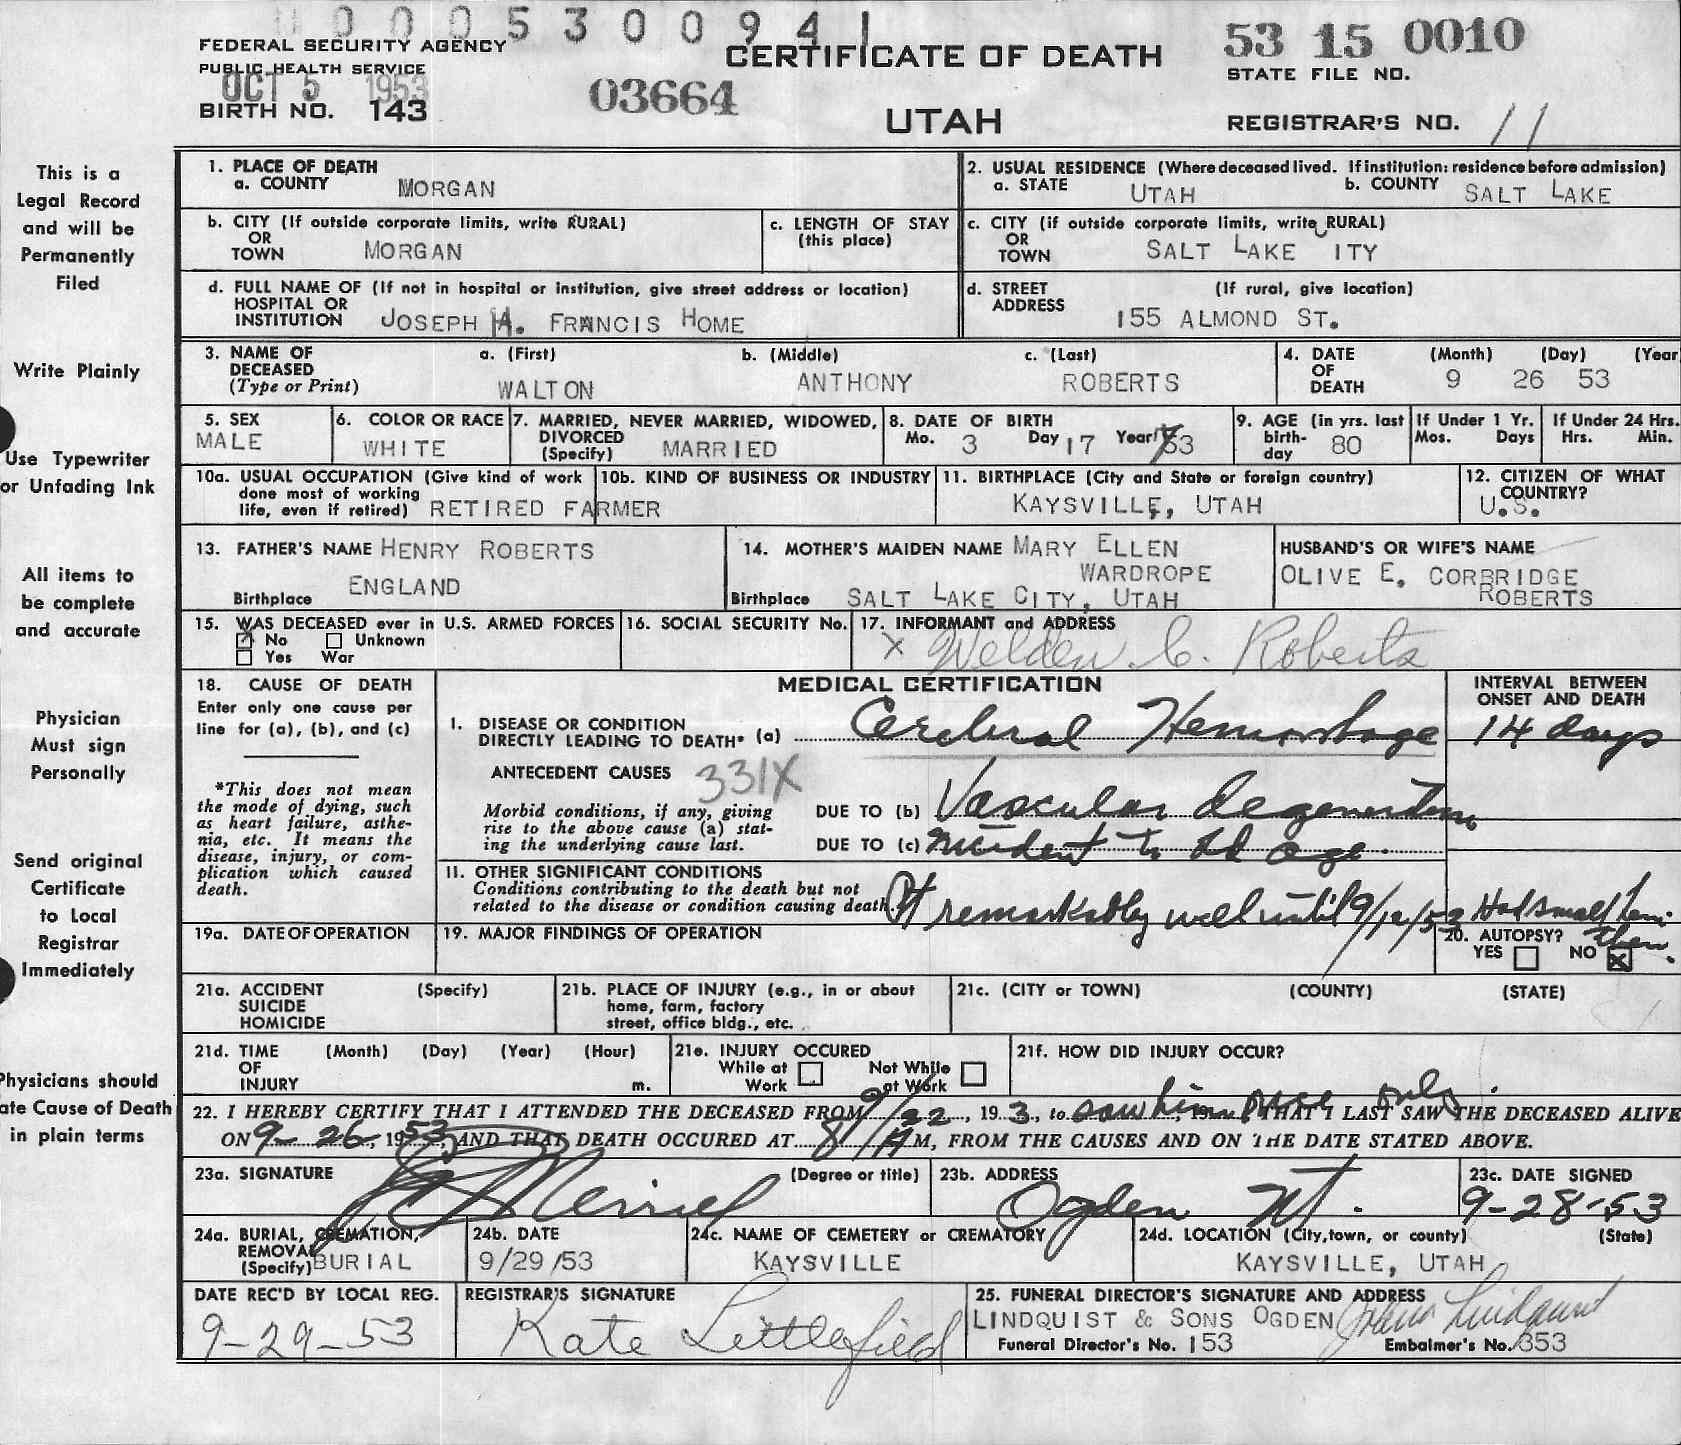 0005300941
FEDERAL SECURITY AGENCY
PUBLIC HEALTH SERVICE
OCT 5 1953
BIRTH NO. 143
03664
CERTIFICATE OF DEATH
UTAH
53 15 0010
STATE FILE NO.
REGISTRAR'S NO. 11
This is a
Legal Record
and will be
Permanently
Filed
Write Plainly
Use Typewriter
or Unfading Ink
All items to
be complete
and accurate
Physician
Must sign
Personally
Send original
Certificate
to Local
Registrar
Immediately
Physicians should
ate Cause of Death
in plain terms
1. PLACE OF DEATH
a. COUNTY MORGAN
2. USUAL RESIDENCE (Where deceased lived. If institution: residence before admission)
a. STATE UTAH b. COUNTY SALT LAKE
b. CITY (If outside corporate limits, write RURAL)
OR
TOWN MORGAN
c. LENGTH OF STAY
(this place)
c. CITY (if outside corporate limits, write RURAL)
OR
TOWN SALT LAKE ITY
d. FULL NAME OF (If not in hospital or institution, give street address or location)
HOSPITAL OR
INSTITUTION JOSEPH H. FRANCIS HOME
d. STREET (If rural, give location)
ADDRESS 155 ALMOND ST.
3. NAME OF a. (First) b. (Middle) c. (Last)
DECEASED
(Type or Print) WALTON ANTHONY ROBERTS
4. DATE (Month) (Day) (Year
OF
DEATH 9 26 53
5. SEX
MALE
6. COLOR OR RACE
WHITE
7. MARRIED, NEVER MARRIED, WIDOWED,
DIVORCED
(Specify) MARRIED
8. DATE OF BIRTH
Mo. 3 Day 17 Year 73
9. AGE (in yrs. last
birth-
day 80
If Under 1 Yr.
Mos. Days
If Under 24 Hrs.
Hrs. Min.
10a. USUAL OCCUPATION (Give kind of work
done most of working
life, even if retired) RETIRED FARMER
10b. KIND OF BUSINESS OR INDUSTRY
11. BIRTHPLACE (City and State or foreign country)
KAYSVILLE, UTAH
12. CITIZEN OF WHAT
COUNTRY?
U.S.
13. FATHER'S NAME HENRY ROBERTS
Birthplace ENGLAND
14. MOTHER'S MAIDEN NAME MARY ELLEN
WARDROPE
Birthplace SALT LAKE CITY, UTAH
HUSBAND'S OR WIFE'S NAME
OLIVE E. CORBRIDGE
ROBERTS
15. WAS DECEASED ever in U.S. ARMED FORCES
No Unknown
Yes War
16. SOCIAL SECURITY No.
17. INFORMANT and ADDRESS
X Welden C. Roberts
18. CAUSE OF DEATH
Enter only one cause per
line for (a), (b), and (c)
*This does not mean
the mode of dying, such
as heart failure, asthe-
nia, etc. It means the
disease, injury, or com-
plication which caused
death.
MEDICAL CERTIFICATION
INTERVAL BETWEEN
ONSET AND DEATH
1. DISEASE OR CONDITION
DIRECTLY LEADING TO DEATH* (a) Cerebral Hemorrhage 14 days
ANTECEDENT CAUSES 331X
Morbid conditions, if any, giving
rise to the above cause (a) stat-
ing the underlying cause last.
DUE TO (b) Vascular degeneration
DUE TO (c) incident to old age.
11. OTHER SIGNIFICANT CONDITIONS
Conditions contributing to the death but not
related to the disease or condition causing death. Pt remarkably well until 9/12/53 Had small hem. then.
19a. DATE OF OPERATION
19. MAJOR FINDINGS OF OPERATION
20. AUTOPSY?
YES NO X
21a. ACCIDENT (Specify)
SUICIDE
HOMICIDE
21b. PLACE OF INJURY (e.g., in or about
home, farm, factory
street, office bldg., etc.
21c. (CITY or TOWN) (COUNTY) (STATE)
21d. TIME (Month) (Day) (Year) (Hour)
OF
INJURY m.
21e. INJURY OCCURED
While at Work
Not While at Work
21f. HOW DID INJURY OCCUR?
22. I HEREBY CERTIFY THAT I ATTENDED THE DECEASED FROM 9/22, 193, to saw him once only. THAT I LAST SAW THE DECEASED ALIVE
ON 9-26, 1953 AND THAT DEATH OCCURED AT 8 AM, FROM THE CAUSES AND ON THE DATE STATED ABOVE.
23a. SIGNATURE Merrill (Degree or title)
23b. ADDRESS Ogden Ut.
23c. DATE SIGNED
9-28-53
24a. BURIAL, CREMATION,
REMOVAL
(Specify) BURIAL
24b. DATE
9/29/53
24c. NAME OF CEMETERY or CREMATORY
KAYSVILLE
24d. LOCATION (City, town, or county) (State)
KAYSVILLE, UTAH
DATE REC'D BY LOCAL REG.
9-29-53
REGISTRAR'S SIGNATURE
Kate Littlefield
25. FUNERAL DIRECTOR'S SIGNATURE AND ADDRESS
LINDQUIST & SONS OGDEN Lindquist
Funeral Director's No. 153 Embalmer's No. 353